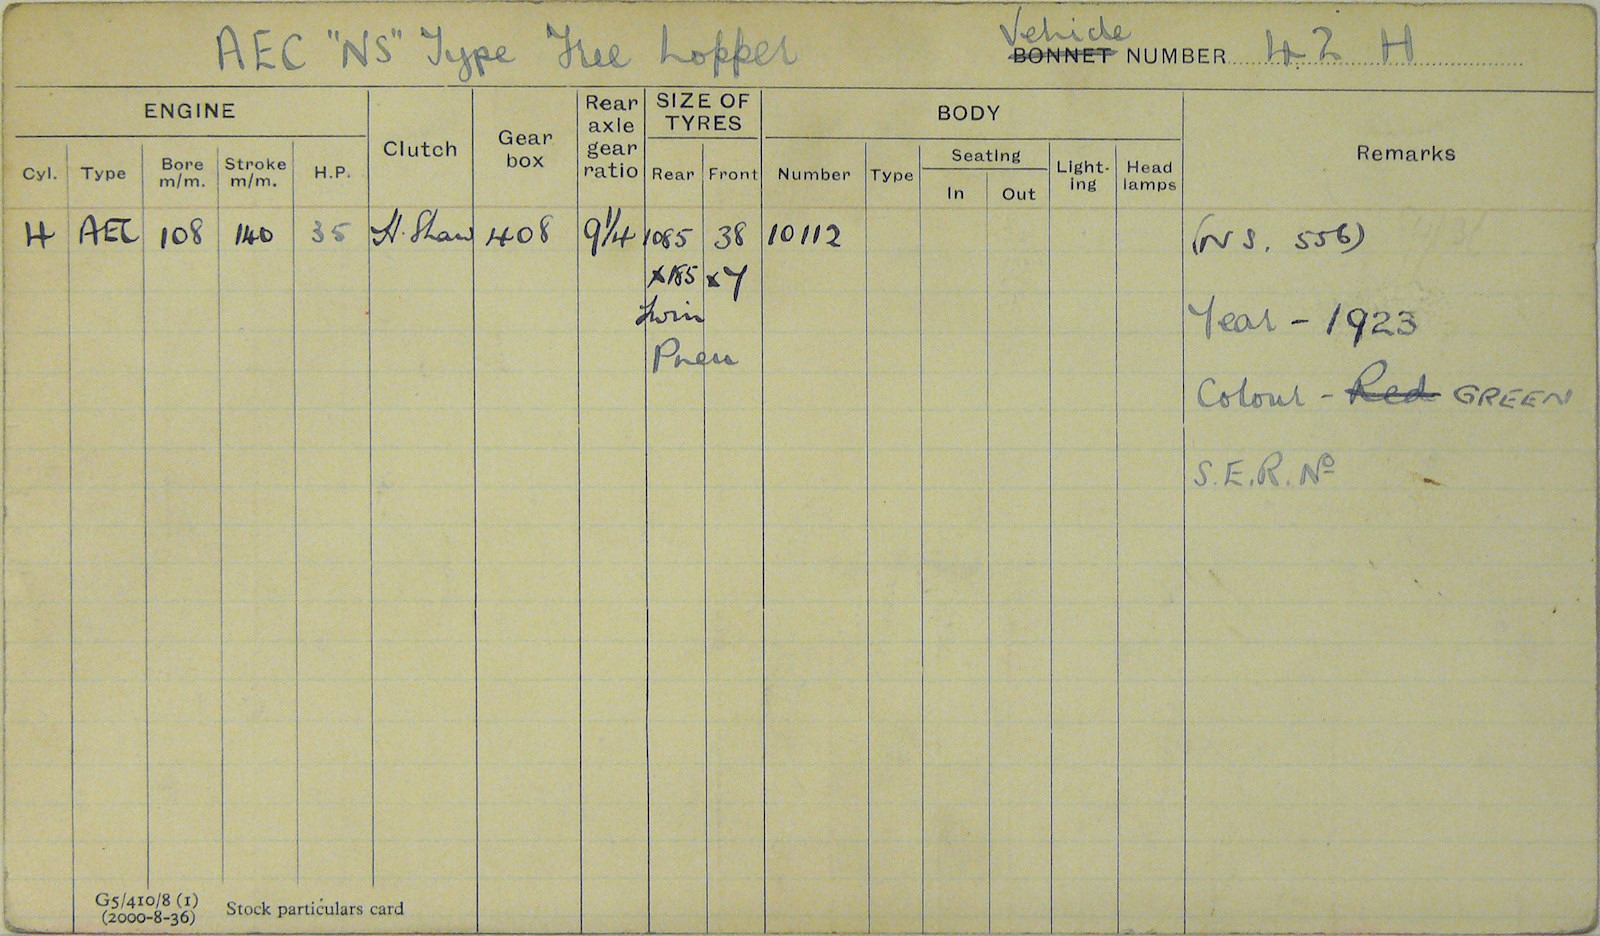 AEC "NS" Type Tree Lopper
Vehicle
BONNET NUMBER 42 H
ENGINE
Clutch
Gear box
Rear axle gear ratio
SIZE OF TYRES
BODY
Remarks
Cyl. Type Bore m/m. Stroke m/m. H.P.
Rear Front
Number Type Seating Light-ing Head lamps
In Out
4 AEC 108 140 35 H. Shaw 408 9 1/4 1085 38 10112 (NS. 556)
x185 x7
Twin
Pneu
Year - 1923
Colour - Red GREEN
S.E.R. Nº
G5/410/8 (1)
(2000-8-36) Stock particulars card